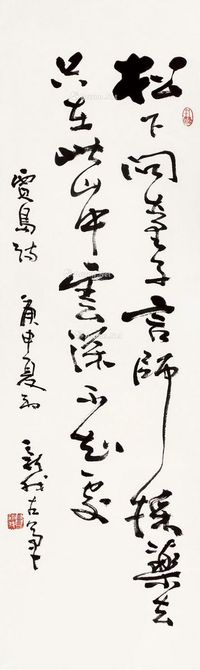 松下问童子言师采药去
只在此山中云深不知处
贾岛诗 庚申夏初